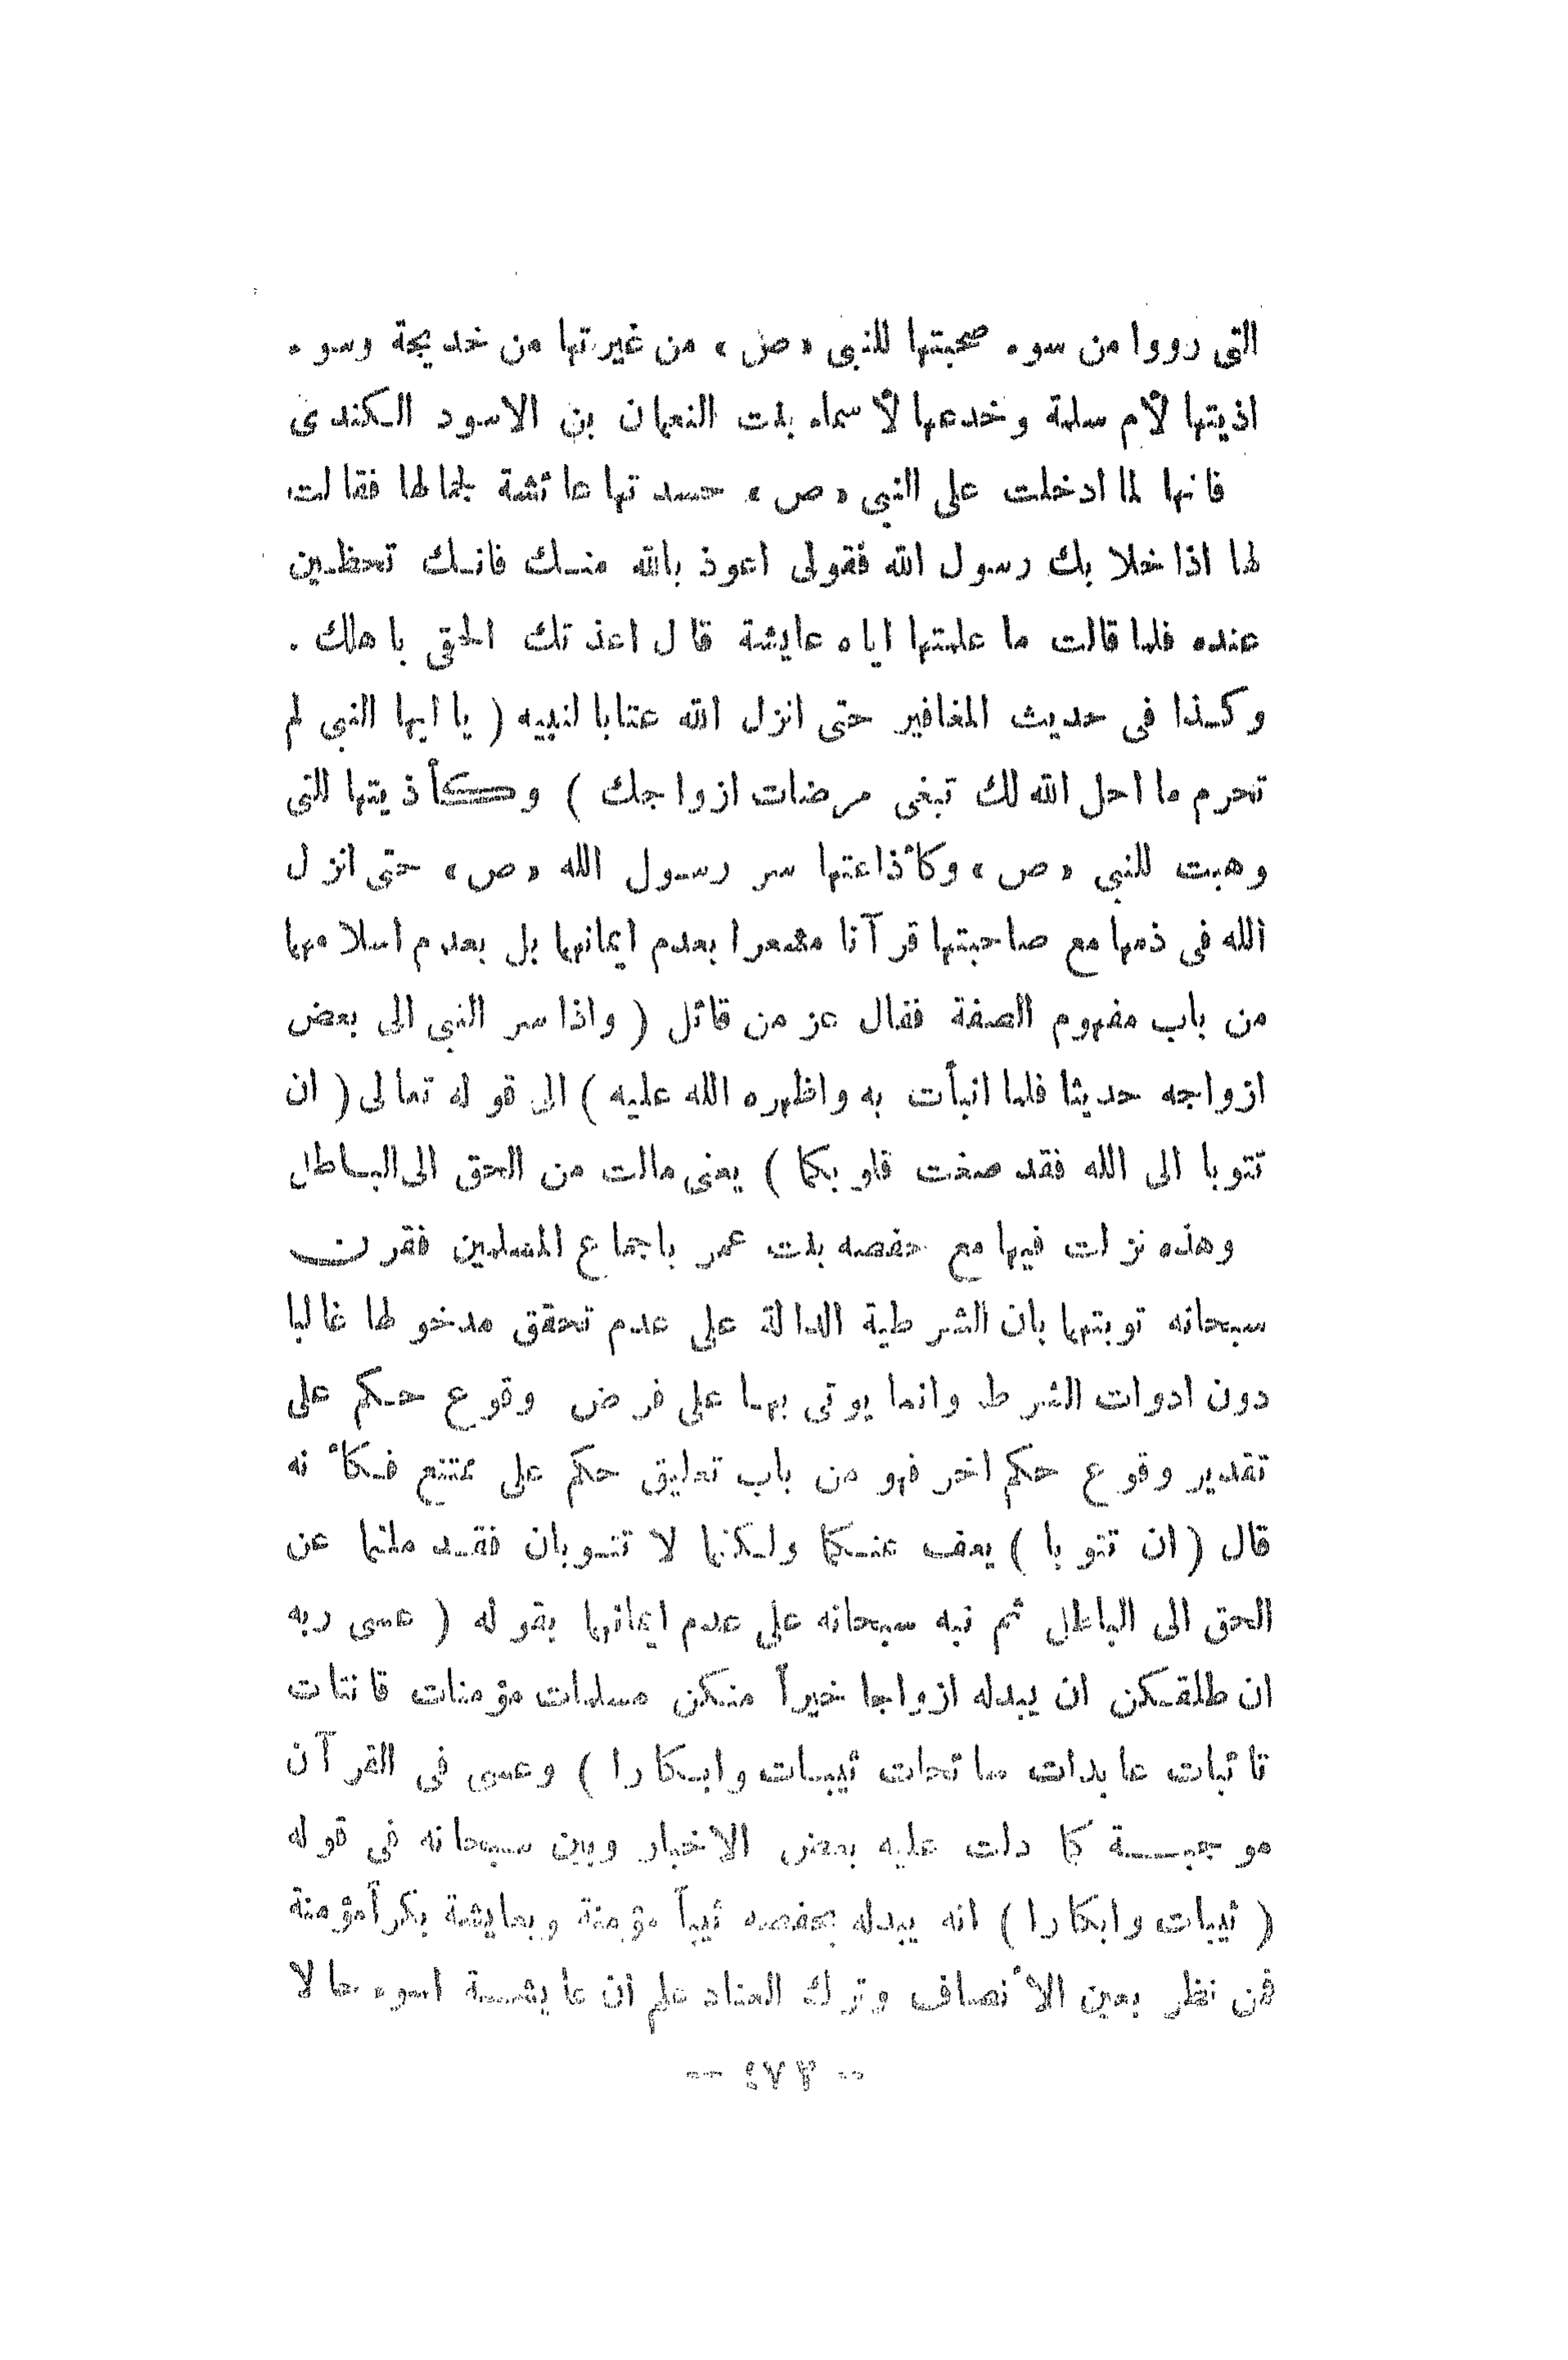 التى رووا من سوء صحبتها للنبى «ص» من غيرتها من خديجة وسوء
اذيتها لأم سلمة وخدعها لأسماء بنت النعمان بن الاسود الكندى
فانها لما ادخلت على النبى «ص» حسدتها عائشة لجمالها فقالت
لها اذا خلا بك رسول الله فقولى اعوذ بالله منك فانك تحظين
عنده فلما قالت ما علمتها اياه عايشة قال اعذتك الحقى باهلك .
وكذا فى حديث المغافير حتى انزل الله عتابا لنبيه ( يا ايها النبى لم
تحرم ما احل الله لك تبغى مرضات ازواجك ) وكأذيتها للتى
وهبت للنبى «ص» وكأذاعتها سر رسول الله «ص» حتى انزل
الله فى ذمها مع صاحبتها قرآنا مشعرا بعدم ايمانهما بل بعدم اسلامهما
من باب مفهوم الصفة فقال عز من قائل ( واذا سر النبى الى بعض
ازواجه حديثا فلما انبأت به واظهره الله عليه ) الى قوله تعالى ( ان
تتوبا الى الله فقد صغت قلوبكما ) يعنى مالت من الحق الى الباطل
وهذه نزلت فيها مع حفصه بنت عمر باجماع المسلمين فقرن
سبحانه توبتهما بان الشرطية الدالة على عدم تحقق مدخولها غالبا
دون ادوات الشرط وانما يوتى بها على فرض وقوع حكم على
تقدير وقوع حكم اخر فهو من باب تعليق حكم على ممتنع فكأنه
قال ( ان تتوبا ) يعف عنكما ولكنها لا تتوبان فقد ملتما عن
الحق الى الباطل ثم نبه سبحانه على عدم ايمانهما بقوله ( عسى ربه
ان طلقكن ان يبدله ازواجا خيراً منكن مسلمات مؤمنات قانتات
تائبات عابدات سائحات ثيبات وابكارا ) وعسى فى القرآن
موجبة كما دلت عليه بعض الاخبار وبين سبحانه فى قوله
( ثيبات وابكارا ) انه يبدله بحفصه ثيباً مؤمنة وبعايشة بكراً مؤمنة
فمن نظر بعين الأنصاف وترك العناد علم ان عايشة اسوء حالا
-- ٤٧٣ --